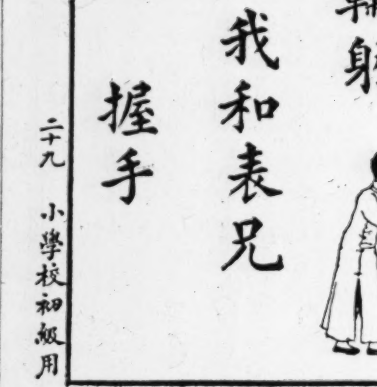 躬
我和表兄
握手
二十九 小學校初級用